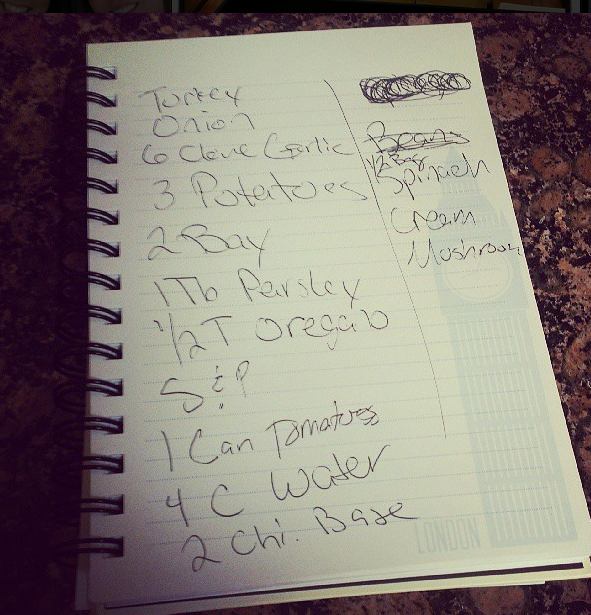 Turkey
Onion
6 Clove Garlic
3 Potatoes
2 Bay
1 Tb Parsley
1/2 T Oregano
S & P
1 Can Tomatoes
4 C Water
2 Chi. Base
Beans
1/2 Bag
Spinach
Cream
Mushroom
LONDON